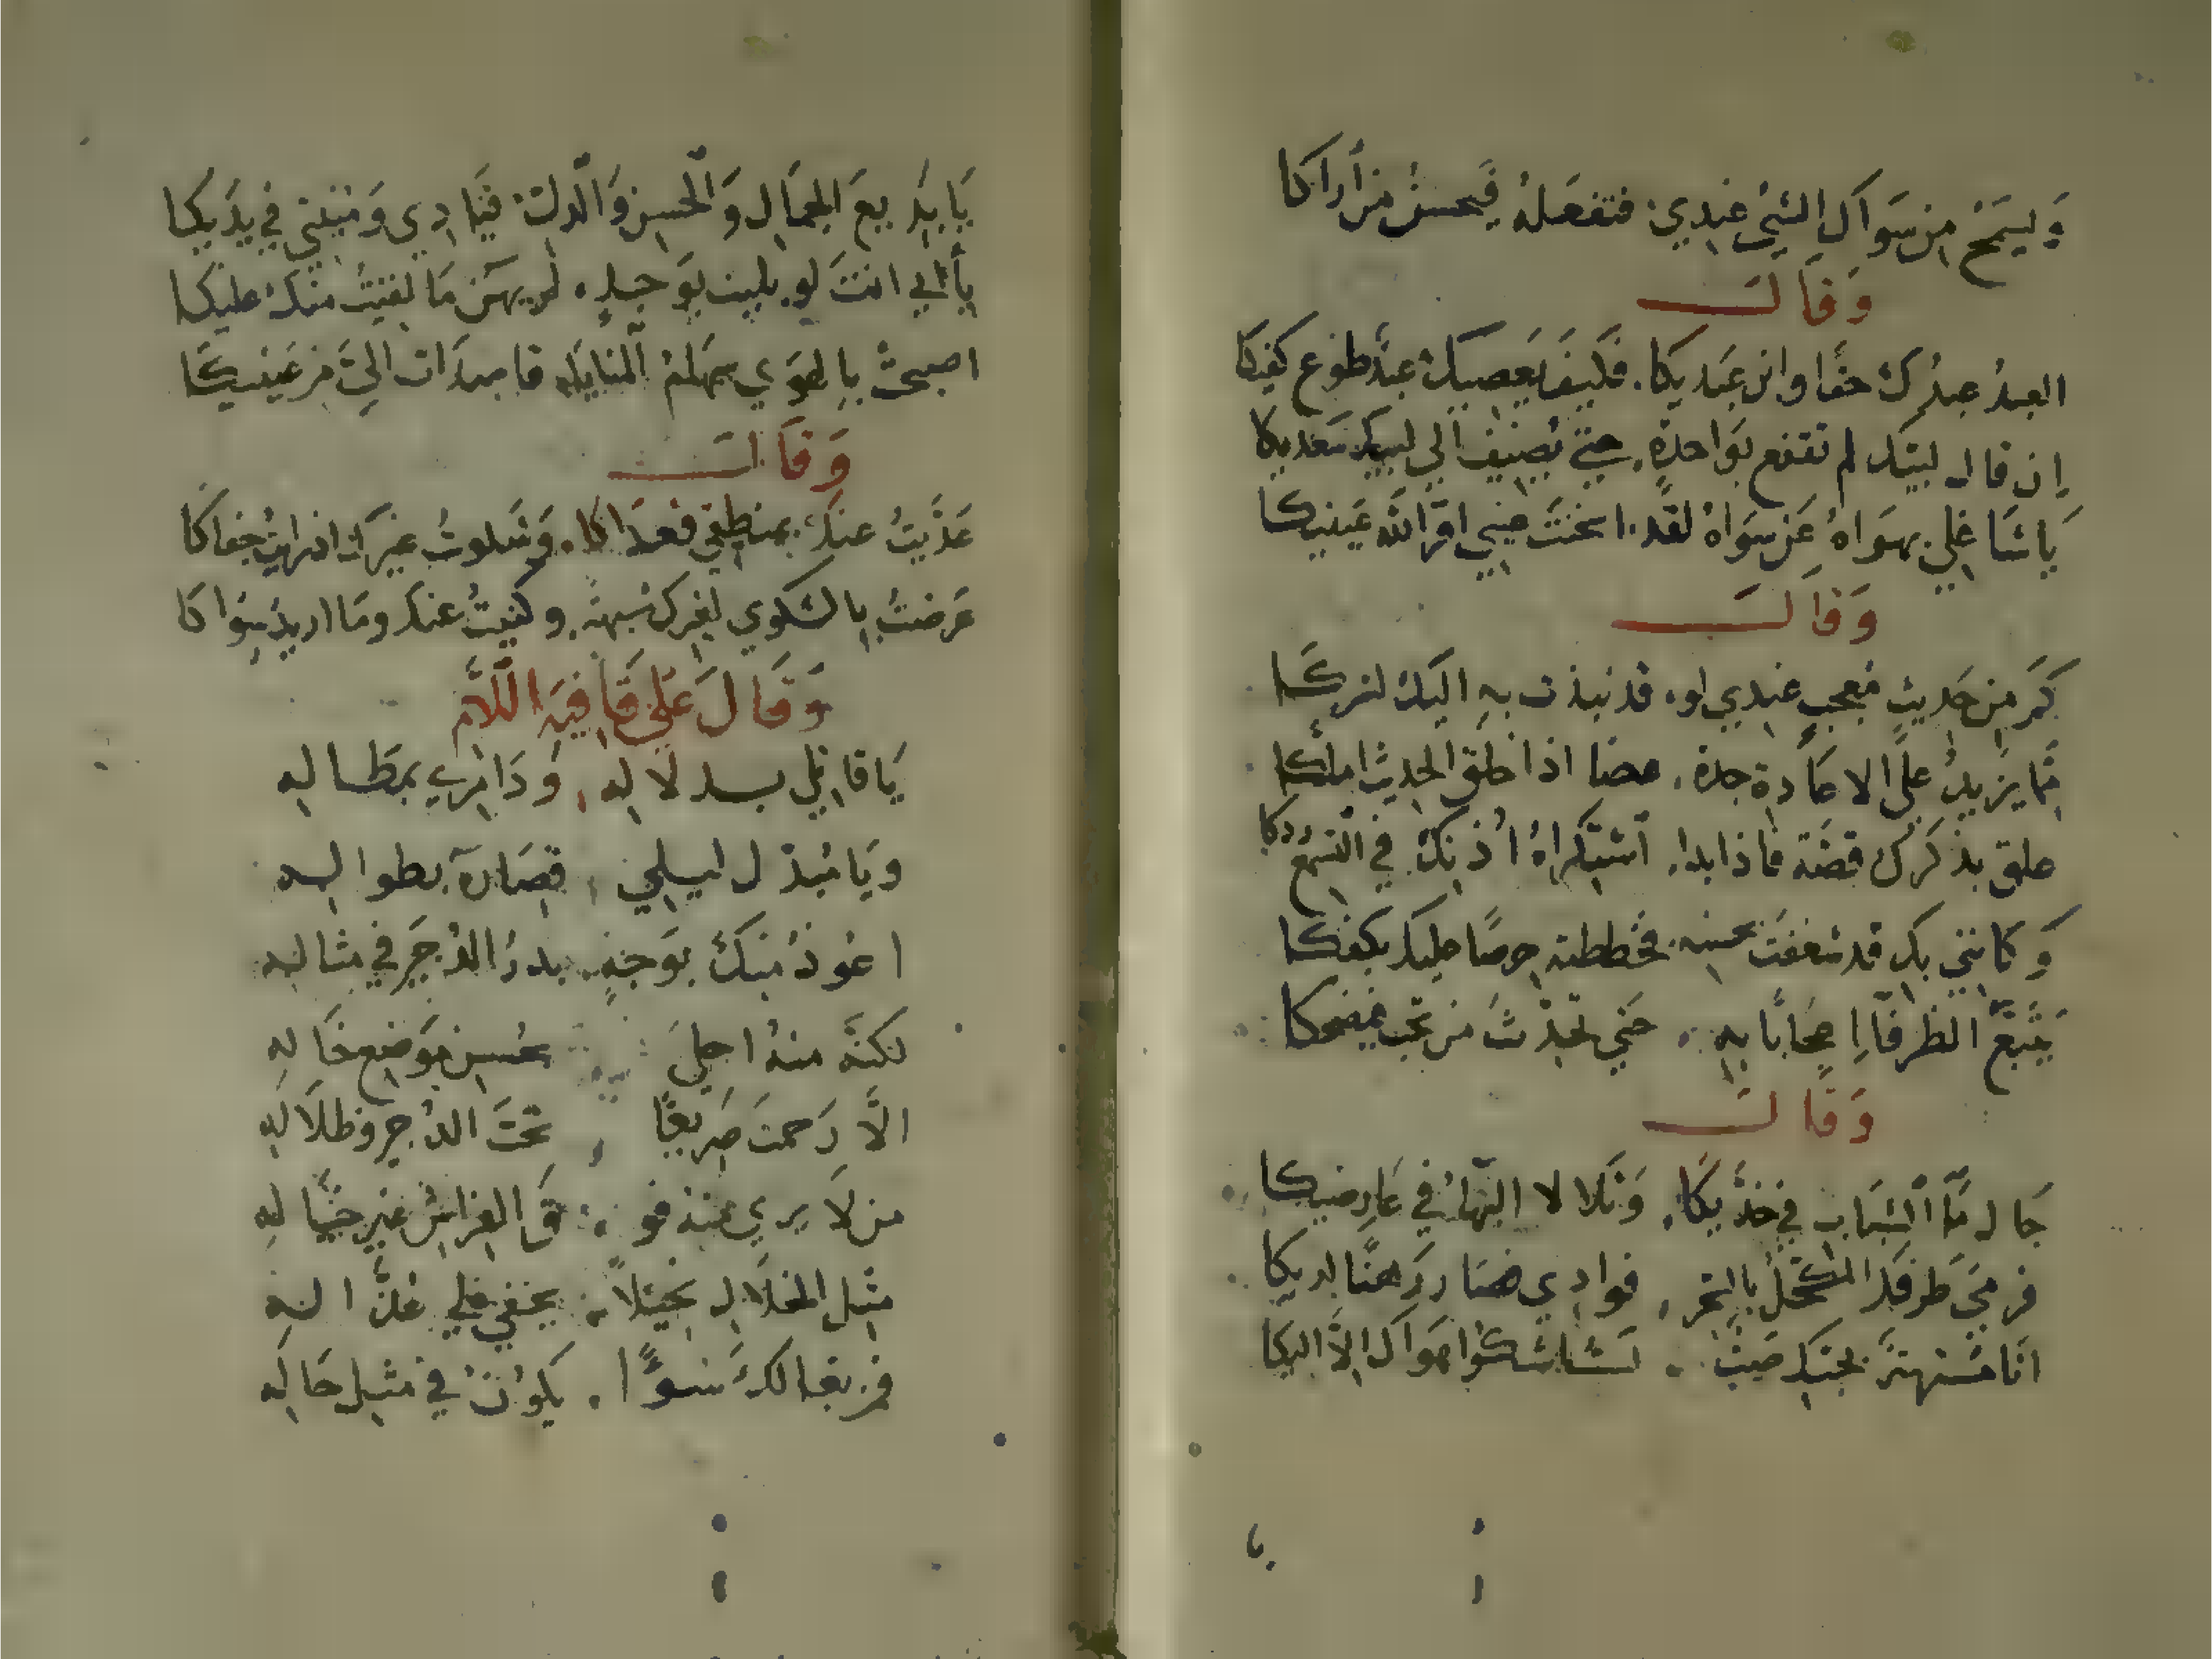 وَيسَمُج من سَوَاك الشيُ عندي فتفعَلهُ فيَحسنُ مِن أراكا
وَقَالَ
العبدُ عبدُك حقًا وابن عَبديكا فكَيفَ يَعصيكَ عبدٌ طوع كفيكا
إن قال لبيك لم تقنع بوَاحدةٍ حتى يُضيف الي لبيك سَعديكا
يَا شَاغلي بهوَاهُ عَن سوَاهُ لقد اسخنتَ عيني اقرَّ اللّه عَينيكا
وَقَالَ
كم من حَديثٍ مُعجبٍ عندي لو قد نبذت به اليك لسركا
مما يَزيدُ علي الاعَادة جدة غضا اذا خلق الحديث املكا
علق بذكرك قصّة فاذا بدا استكراهُ اُذنك في التسمع دكا
وَكانني بك قد شغفت بحسنه فخططته حرصًا عليك بكفكا
يَتتبع الظرفَا اعجَابًا به حَتي تحدث من تحب فيضحكا
وَقَالَ
جَال مَآ الشبَاب في خدّيكَا وَتلالا البَهَآءُ في عَارضيكا
فرمَي طرفك المكتحل بالسحر فوادي فصَار رَهنًا لديكا
انَا مُستهتَر بحبك صَبٌّ لستُ اشكُوا هوَاك الاَّ اليكا
يا
يَا بَديعَ الجمَال وَالحسن وَالدلّ حيَاتي وَمَيتتي في يدَيكا
بأبي انتَ لو بليت بوَجدٍ لم يهن مَا لقيتُ منك عليكا
اصبحتْ بالهَوَي سهَام المنايا قاصدَات اليَّ من عَينيكا
وَقَالَ
عَذَّبتُ عنكَ بمنطقي فعداكا وَشلوتُ غيرك اذ رايتُ جفاكا
عَرضتُ بالشكوي لغيرك شبهةً وكنيتُ عنك ومَا اريدُ سواكا
وَقَالَ عَلي قَافيَه اللاَّم
يَا قاتلي بدلاله وَدَائمي بمَطاله
ويَا مُبدل ليلي قصَارهَ بطواله
اعُوذُ منكَ بوَجهٍ بدرُ الدُّجَي في مثاله
لكنَّهُ منهُ احلَي بحُسن مَوَضع خَاله
الاَّ رَحمتَ صَريعًا تحتَ الدُّجي وظلاَله
من لاَ يري منه فو قَ الفراش غير خيَاله
مثل الخلاَل نحيلاً يخفي علي عُذّاله
فمن بغالكَ سُوءًا يكوُنُ في مثل حَاله